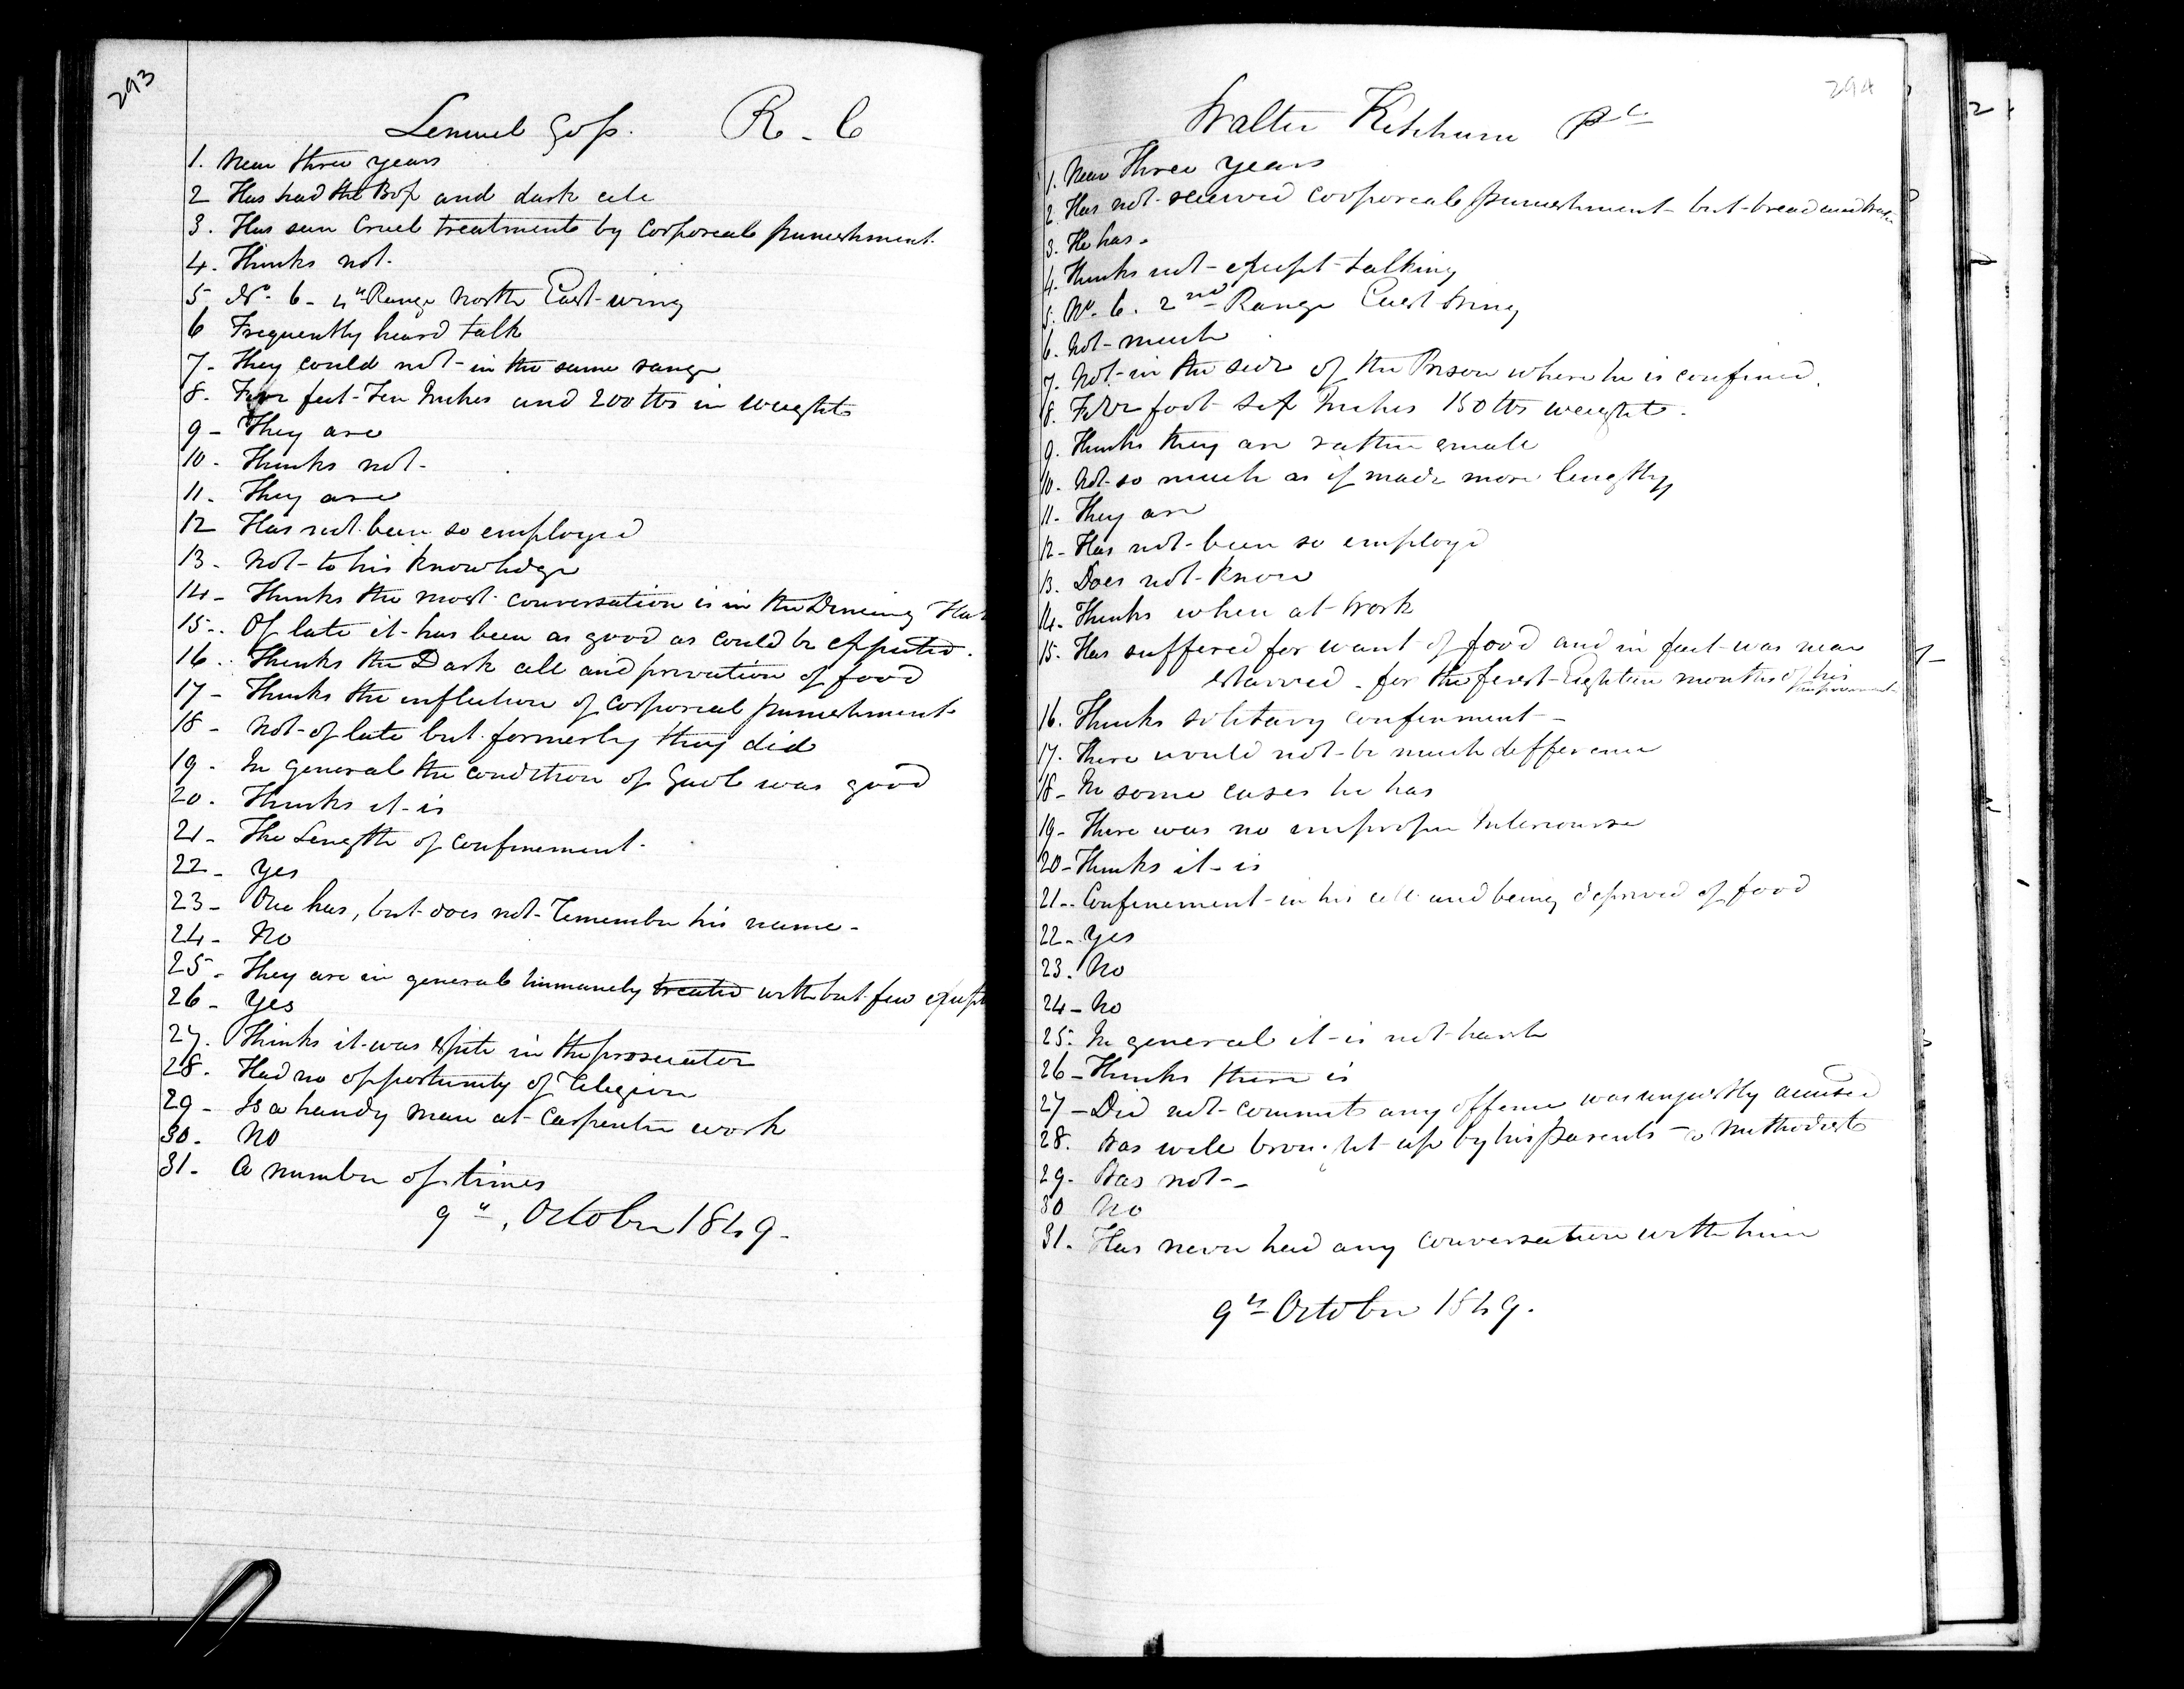 293
Lemuel Goss. R. C
1. Near three years
2 Has had the Box and dark cele
3. Has seen Cruel treatments by Corporeal punishment.
4. Thinks not.
5 No. 6 - 4th Range North East wing
6 Frequently heard talk
7. They could not in the same range
8. Five feet Ten Inches and 200 lbs in weight
9 - They are
10. Thinks not.
11. They are
12 Has not been so employed
13. Not to his knowledge
14 - Thinks the most conversation is in the Dineing
15. Of late it has been as good as could be expected.
16. Thinks the Dark cell and privation of food
17 - Thinks the infliction of Corporeal punishment
18 - Not of late but formerly they did
19. In general the condition of Gaol was good
20. Thinks it is
21 - The Length of confinement.
22 - Yes
23 - One has, but does not Remember his name -
24 - No
25 - They are in general humanely treated with but few
26 - Yes
27. Thinks it was spite in the prosecutor
28. Had no opportunity of Religion
29 - Is a handy man at Carpenter work
30. No
31 - A number of times
9th, October 1849.
294
Walter Ketchum
1. Near Three Years
2. Has not received Corporeal punishment - but bread and
3. He has.
4. Thinks not - except talking
5. No. 6. 2nd Range East Wing
6. Not much
7. Not in the side of the Prison where he is confined.
8. Five foot six Inches 150 lbs weight.
9. Thinks they are rather small
10. Not so much as if made more lengthy
11. They are
12 - Has not been so employd
13. Does not know
14. Thinks when at Work
15. Has suffered for want of food and in fact was near
starved - for the first Eighteen months of his
16. Thinks solitary confinment -
17. There would not be much difference
18 - In some cases he has
19 - There was no improper Intercourse
20 - Thinks it is
21 - Confinement in his cell and being deprived of food
22 - Yes
23. No
24 - No
25. In general it is not harsh
26 - Thinks there is
27 - Did not commit any offence was unjustly accused
28. Was well brought up by his Parents - a Methodist
29. Was not -
30 No
31. Has never had any conversation with him
9th October 1849.